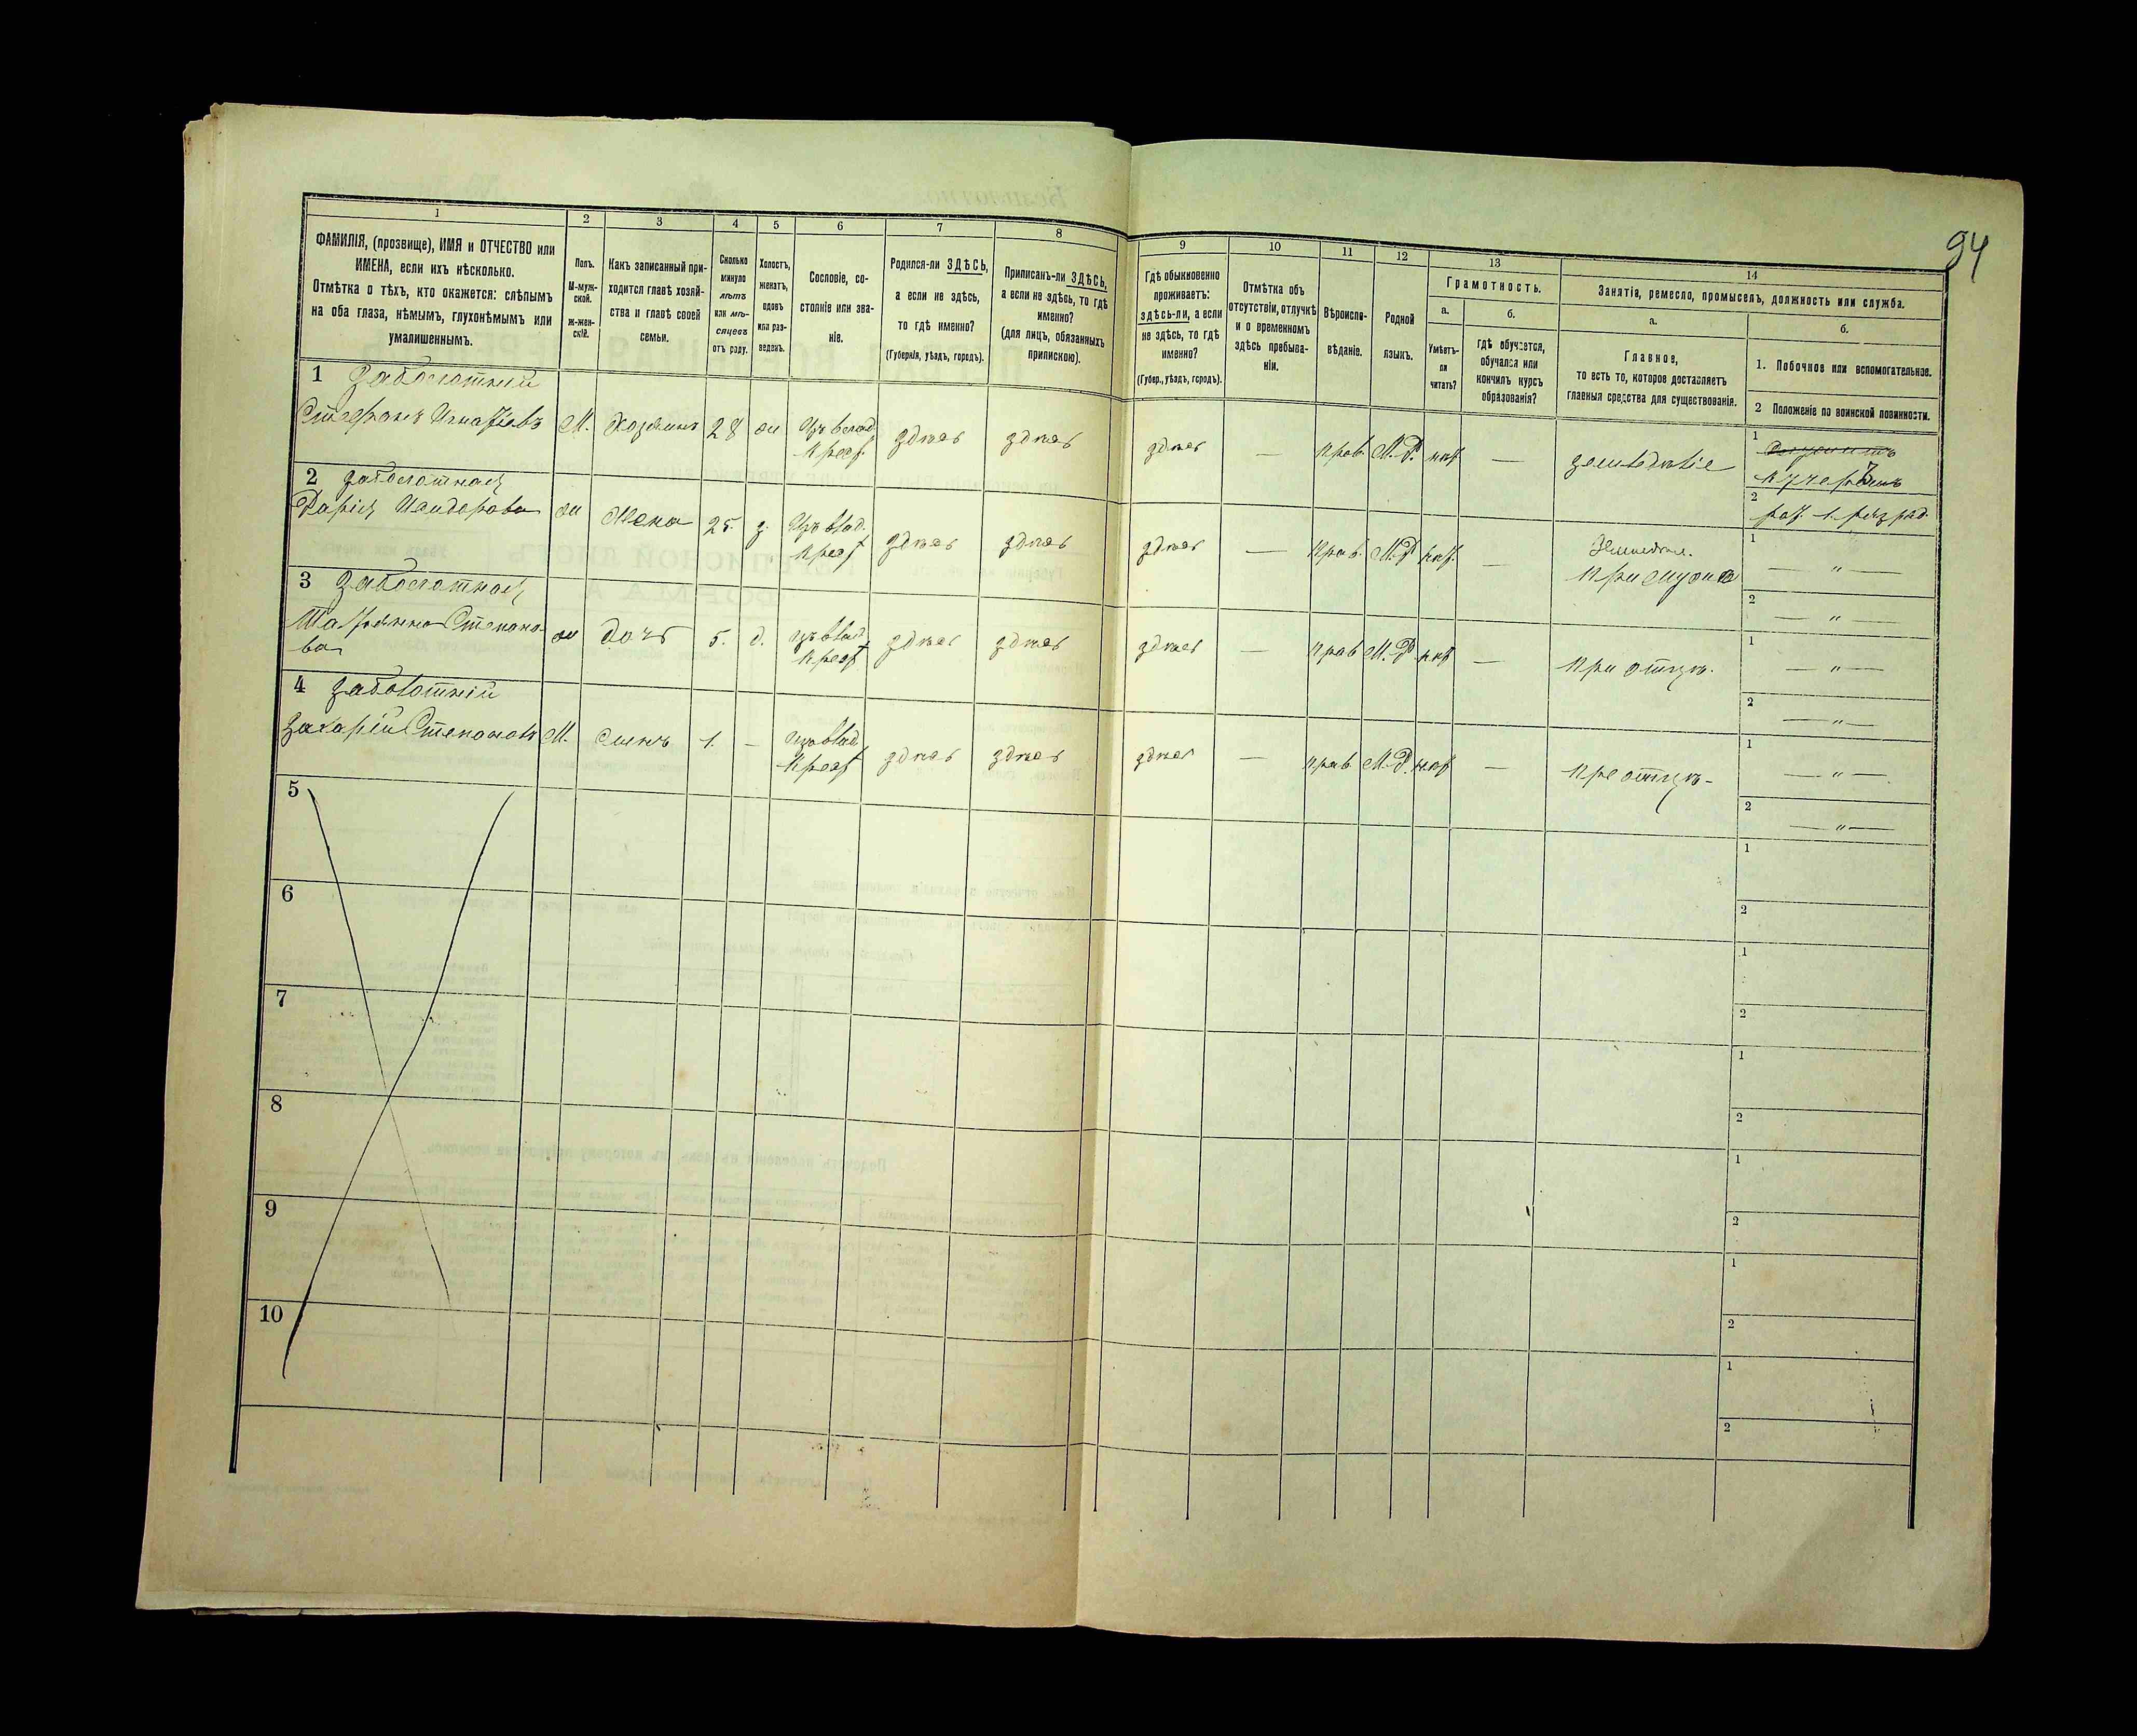 94
1 2 3 4 5 6 7 8 9 10 11 12 13 14
ФАМИЛІЯ, (прозвище), ИМЯ и ОТЧЕСТВО или
ИМЕНА, если ихъ нѣсколько.
Отмѣтка о тѣхъ, кто окажется: слѣпымъ
на оба глаза, нѣмымъ, глухонѣмымъ или
умалишеннымъ.
Полъ.
М-муж-
ской.
Ж-жен-
скій.
Какъ записанный при-
ходится главѣ хозяй-
ства и главѣ своей
семьи.
Сколько
минуло
лѣтъ
или мѣ-
сяцевъ
отъ роду.
Холостъ,
женатъ,
вдовъ
или раз-
веденъ.
Сословіе, со-
стояніе или зва-
ніе.
Родился-ли ЗДѢСЬ,
а если не здѣсь,
то гдѣ именно?
(Губернія, уѣздъ, городъ).
Приписанъ-ли ЗДѢСЬ,
а если не здѣсь, то гдѣ
именно?
(для лицъ, обязанныхъ
припискою).
Гдѣ обыкновенно
проживаетъ:
здѣсь-ли, а если
не здѣсь, то гдѣ
именно?
(Губер., уѣздъ, городъ).
Отмѣтка объ
отсутствіи, отлучкѣ
и о временномъ
здѣсь пребыва-
ніи.
Вѣроиспо-
вѣданіе.
Родной
языкъ.
Грамотность.
а.
Умѣетъ-
ли
читать?
б.
гдѣ обучается,
обучался или
кончилъ курсъ
образованія?
Занятія, ремесло, промыселъ, должность или служба.
а.
Главное,
то есть то, которое доставляетъ
главныя средства для существованія.
б.
1. Побочное или вспомогательное.
2 Положеніе по воинской повинности.
1 Заболотній
Стефанъ Игнатіевъ М. Хозяинъ 28 ж
крест. здѣсь здѣсь здѣсь — прав. М.Р. нѣт — земледѣліе
1
кучеромъ
2 рат. 1 разряд.
2 Заболотная
Дарія Исидорова ж Жена 25. з.
крест здѣсь здѣсь здѣсь — прав. М.Р. нѣт. — при мужѣ
1 — „ —
2 — „ —
3 Заболотная
Степано-
ва ж дочь 5. д.
крест здѣсь здѣсь здѣсь — прав М.Р. нѣт — при отцѣ.
1 — „ —
2 — „ —
4 Заболотній
Захарій Степановъ М. сынъ 1. —
крест здѣсь здѣсь здѣсь — прав М.Р. нѣт — при отцѣ -
1 — „ —
2 — „ —
5
1
2
6
1
2
7
1
2
8
1
2
9
1
2
10
1
2